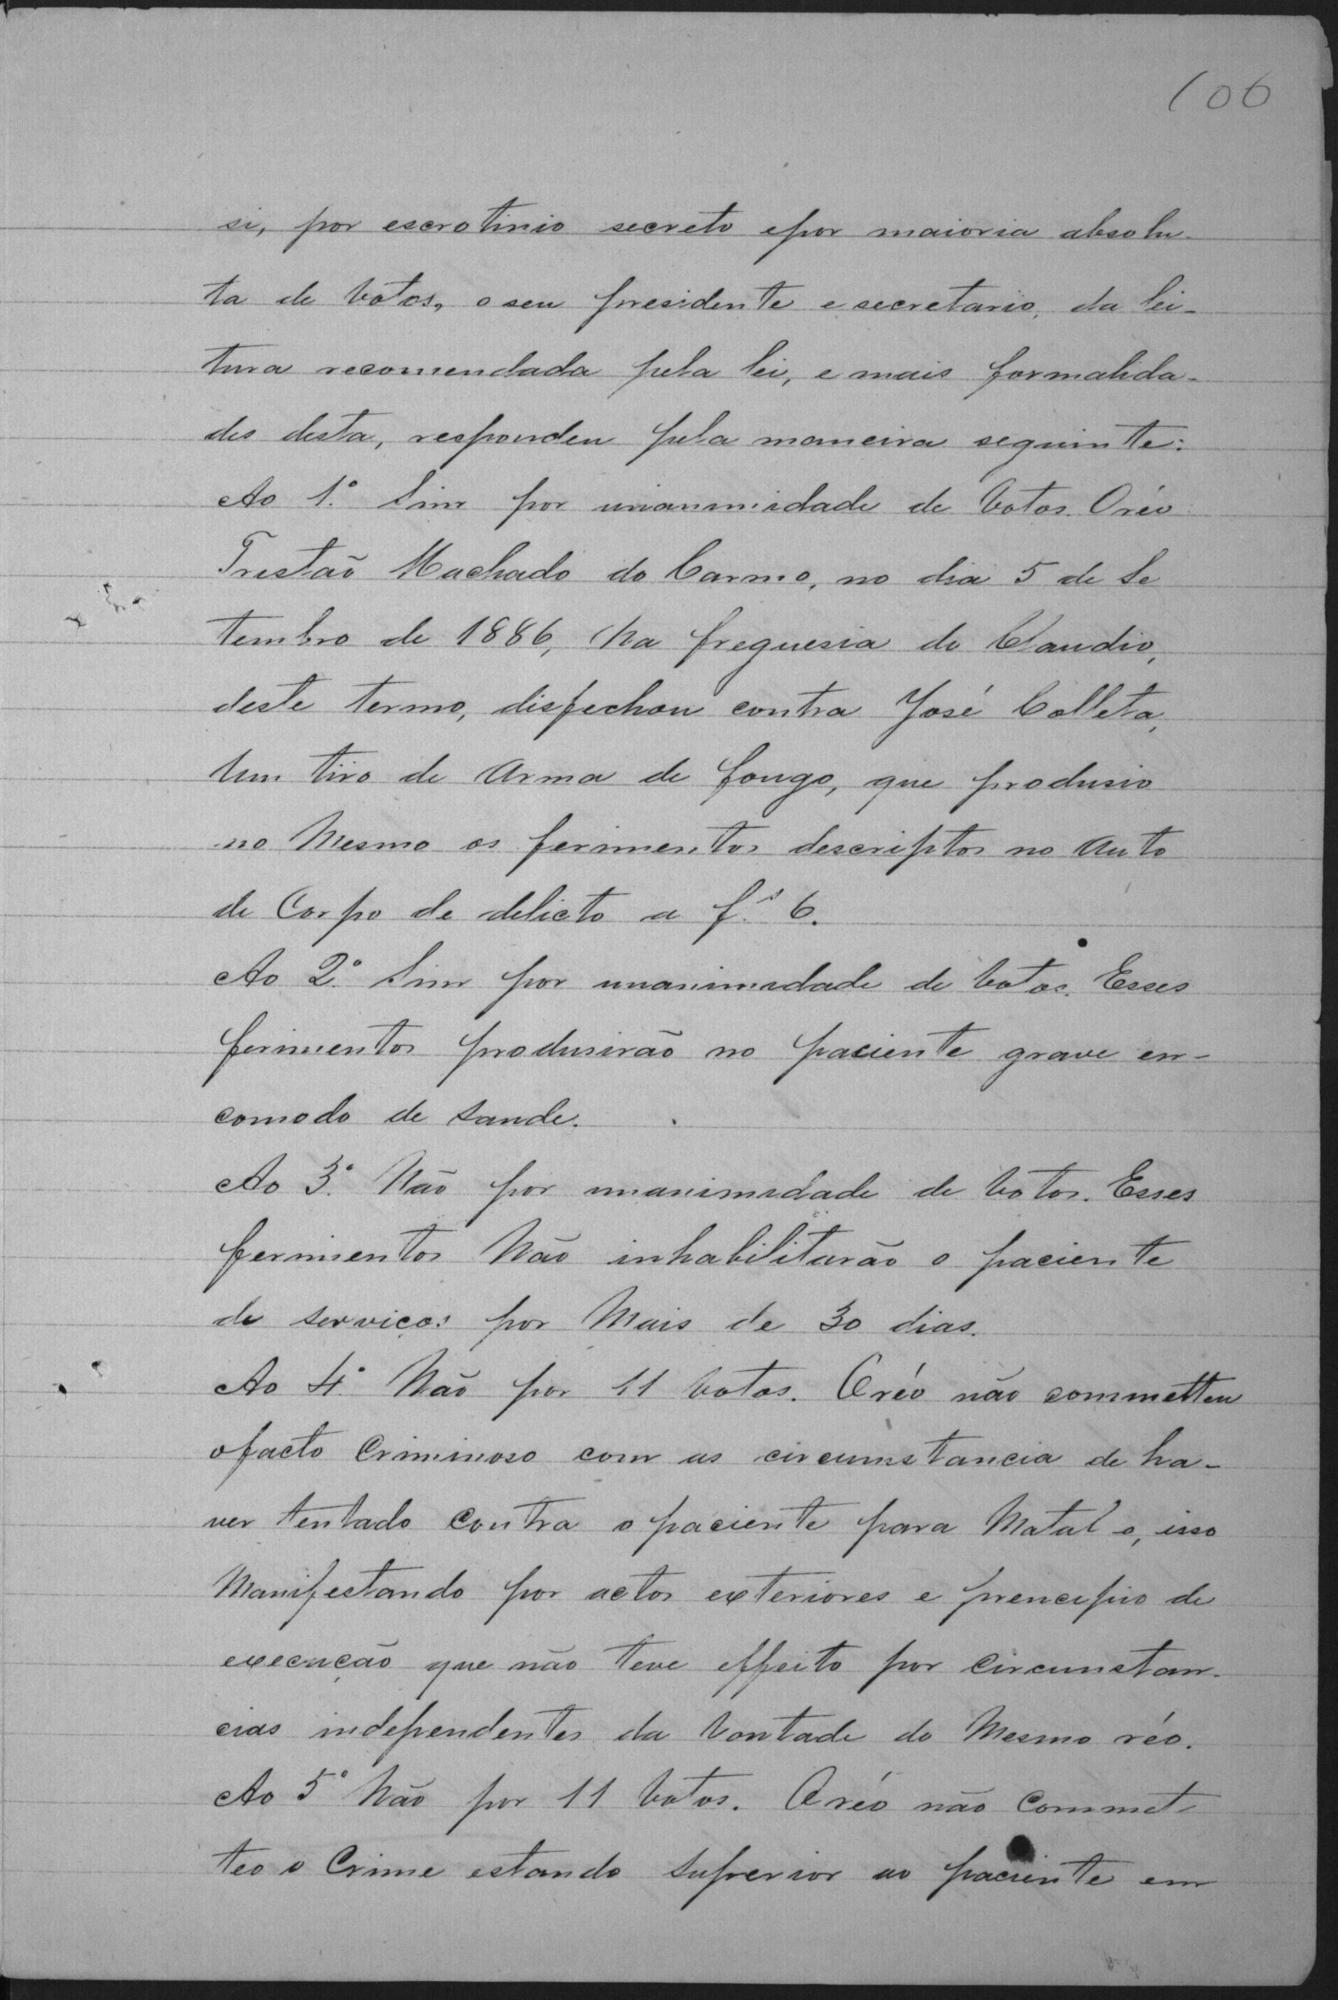 106
si, por escrotinio secreto epor maioria absolu-
ta de Votos, o seu presidente e secretario, da lei-
tura recomendada pela lei, e mais formalida-
des desta, respondeu pela maneira seguinte:
Ao 1º. Sim por unanimidade de Votos. Oréo
Tristão Machado do Carmo, no dia 5 de Se
tembro de 1886, Na freguesia do Claudio,
deste termo, disfechou contra José Colleta,
Um tiro de Arma de fougo, que produsio
no Mesmo os ferimentos descriptos no Auto
de Corpo de delicto a fs. 6.
Ao 2º. Sim por unanimidade de Votos. Esses
ferimentos produsirão no paciente grave en-
comodo de Saude.
Ao 3º. Não por unanimidade de Votos. Esses
ferimentos Não inhabilitarão o paciente
de serviços por Mais de 30 dias.
Ao 4º. Não por 11 Votos. Oréo não commetteu
ofacto Criminoso com as circumstancia de ha-
ver tentado Contra o paciente para Matal o, isso
Manifestando por actos exteriores e prencipio de
execução que não teve effeito por Circumstan-
cias independentes da Vontade do Mesmo réo.
Ao 5º Não por 11 Votos. Oréo não Commet-
teo o Crime estando Superior ao paciente em